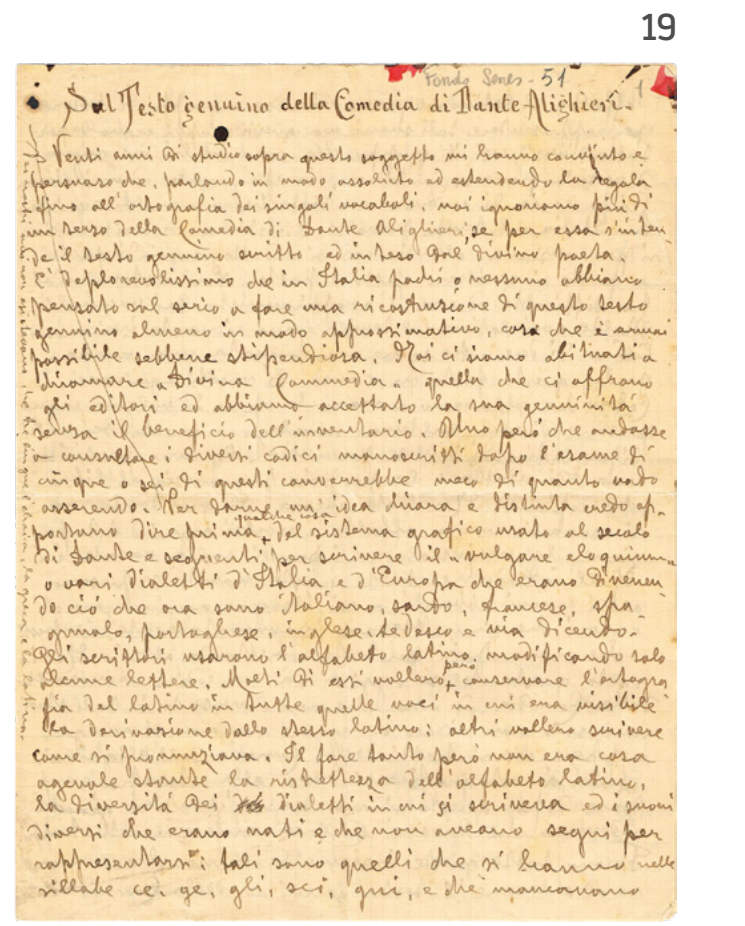 19
Fondo Senes - 51
1
Sul Testo genuino della Comedia di Dante Alighieri.
Venti anni di studio sopra questo soggetto mi hanno convinto e
persuaso che, parlando in modo assoluto ed estendendo la regola
fino all'ortografia dei singoli vocaboli, noi ignoriamo più di
un terzo della Comedia di Dante Alighieri, se per essa s'inten-
de il testo genuino scritto ed inteso dal divino poeta.
E' deplorevolissimo che in Italia pochi o nessuno abbiano
pensato sul serio a fare una ricostruzione di questo testo
genuino almeno in modo approssimativo, cosa che è ormai
possibile sebbene stipendiosa. Noi ci siamo abituati a
chiamare "Divina Commedia" quella che ci offrono
gli editori ed abbiamo accettato la sua genuinità
senza il beneficio dell'inventario. Uno però che andasse
a consultare i diversi codici manoscritti dopo l'esame di
cinque o sei di questi converrebbe meco di quanto vado
asserendo. Per darne un'idea chiara e distinta credo op-
portuno dire prima qualche cosa del sistema grafico usato al secolo
di Dante e seguenti per scrivere il "vulgare eloquium"
o vari dialetti d'Italia e d'Europa che erano divenen-
do ciò che ora sono italiano, sardo, francese, spa-
gnuolo, portoghese, inglese, tedesco e via dicendo.
Gli scrittori usarono l'alfabeto latino, modificando solo
alcune lettere. Molti di essi vollero però conservare l'ortogra
fia del latino in tutte quelle voci in cui era visibile
la derivazione dallo stesso latino: altri vollero scrivere
come si pronunziava. Il fare tanto però non era cosa
agevole stante la ristrettezza dell'alfabeto latino,
la diversità dei dialetti in cui si scriveva ed i suoni
diversi che erano nati e che non aveano segni per
rappresentarsi: tali sono quelli che si hanno nelle
sillabe ce, ge, gli, sci, gni, e che mancavano